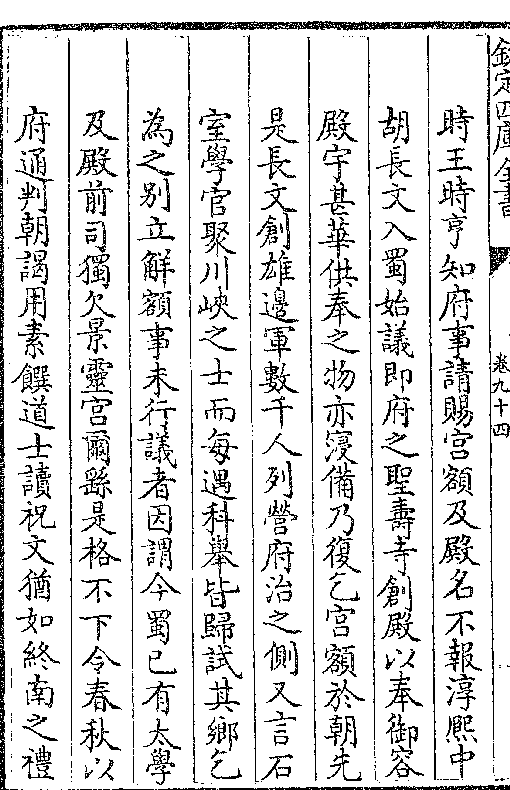 欽定四庫全書
卷九十四
時王時亨知府事請賜宫額及殿名不報淳熙中
胡長文入蜀始議即府之聖壽寺創殿以奉御容
殿宇甚華供奉之物亦寖備乃復乞宫額於朝先
是長文創雄邊軍數千人列營府治之側又言石
室學官聚川峽之士而每遇科舉皆歸試其鄉乞
為之别立解額事未行議者因謂今蜀已有太學
及殿前司獨欠景靈宫爾繇是格不下今春秋以
府通判朝謁用素饌道士讀祝文猶如終南之禮